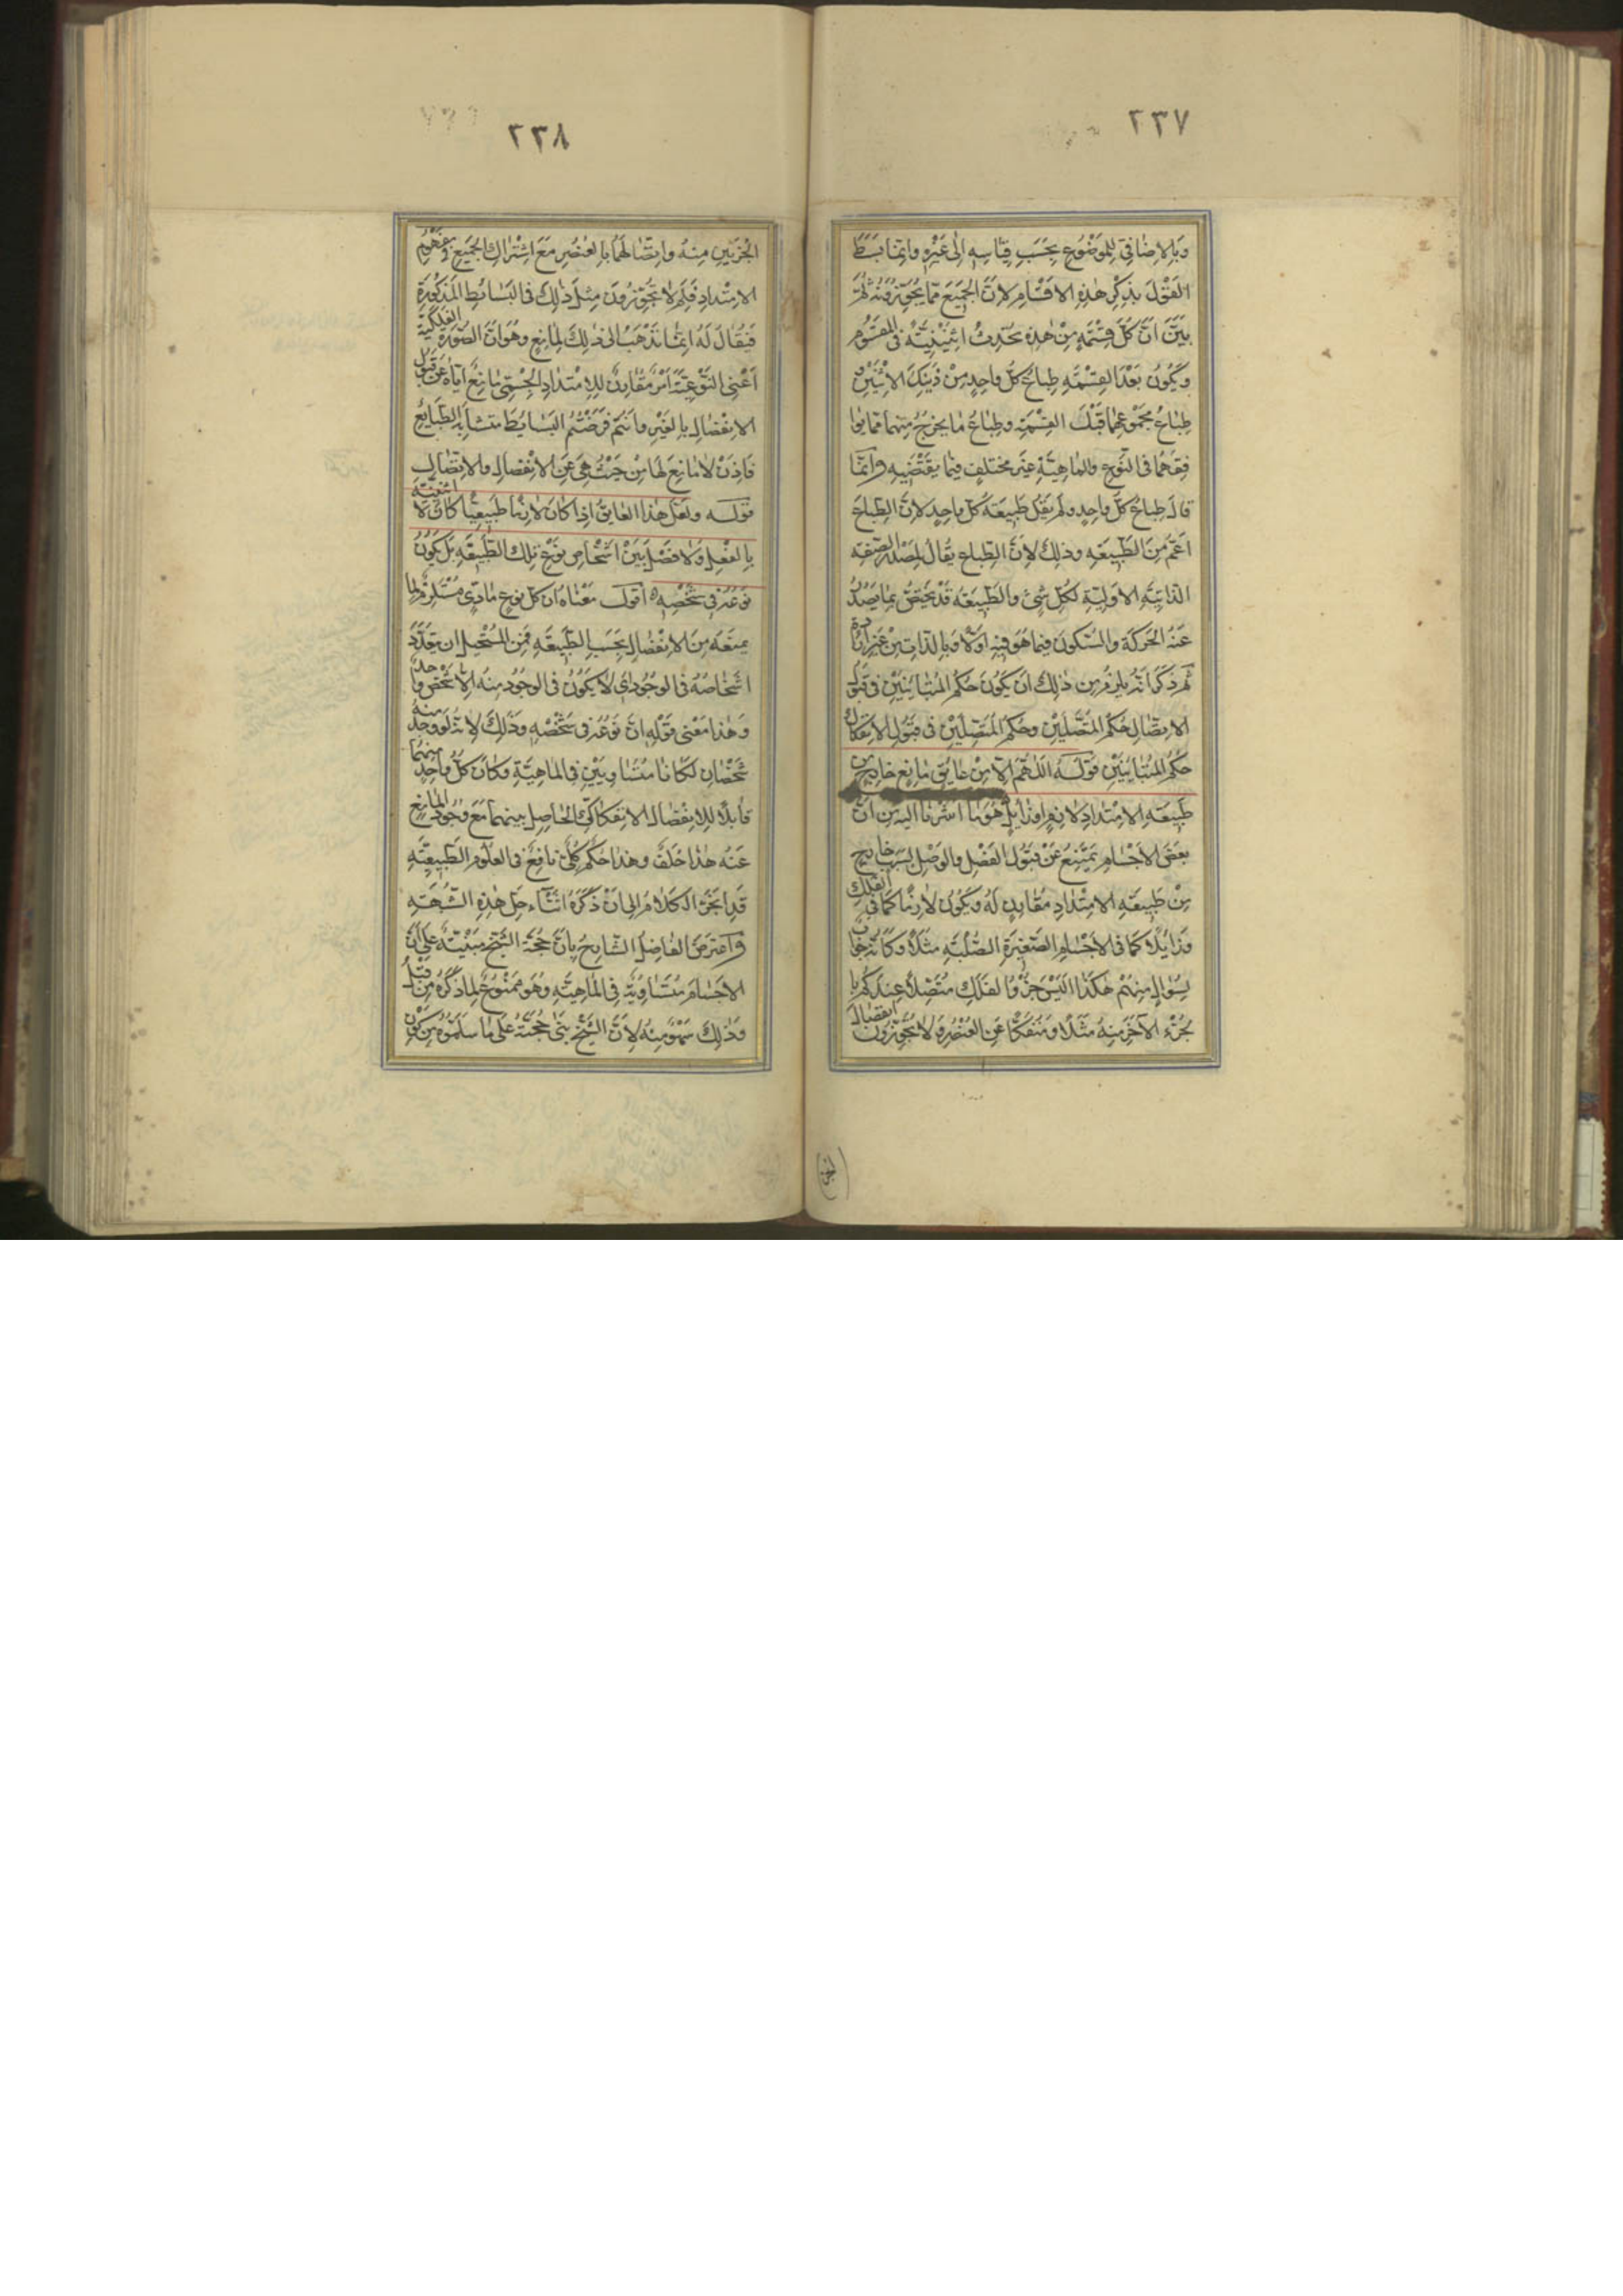 ٢٣٧
وبالإضافي للموضوع بحسب قياسه إلى غيره وإنما بسط
القول بذكر هذه الأقسام لأن الجميع مما يجوزونه ثم
بين أن كل قسمة من هذه تحدث اثنينية في المقسوم
ويكون بعد القسمة طباع كل واحد من ذينك الاثنين
طباع مجموعهما قبل القسمة وطباع ما يخرج منهما مما يوا
فقهما في النوع والماهية غير مختلف فيما يقتضيه وإنما
قال طباع كل واحد ولم يقل طبيعة كل واحد لأن الطباع
أعم من الطبيعة وذلك لأن الطباع يقال لمصدر الصفة
الذاتية الأولية لكل شيء والطبيعة قد تختص بما يصدر
عنه الحركة والسكون فيما هو فيه أولا وبالذات من غير إرادة
ثم ذكر أنه يلزم من ذلك أن يكون حكم المتباينين في قبول
الاتصال حكم المتصلين وحكم المتصلين في قبول الانفكاك
حكم المتباينين قوله اللهم إلا من عايق مانع خارج من
طبيعة الامتداد لازم أو زايل هو ما أشرنا إليه من أن
بعض الأجسام يمتنع عن قبول الفصل والوصل لسبب خارج
من طبيعة الامتداد مقارن له ويكون لازما كما في الفلك
وزايلا كما في الأجسام الصغيرة الصلبة مثلا وكأنه جواب
لسؤال منهم هكذا أليس جزؤ الفلك متصلا عندكم با
لجزء الآخر منه مثلا ومنفكا عن العنصر ولا تجوزون انفصال
٢٣٨
الجزئين منه واتصالهما بالعنصر مع اشتراك الجميع في مفهوم
الامتداد فلم لا تجوزون مثل ذلك في البسائط المذكورة
فيقال له إنما نذهب إلى ذلك لمانع وهو أن الصورة الفلكية
أعني النوعية أمر مقارن للامتداد الجسمي مانع إياه عن قبول
الانفصال بالغير وأنتم فرضتم البسائط متشابه الطبايع
فإذن لا مانع لها من حيث هي عن الانفصال والاتصال
قوله ولعل هذا العايق إذا كان لازما طبيعيا كان لا اثنينية
بالفعل ولا فصل بين أشخاص نوع تلك الطبيعة بل يكون
نوعه في شخصه أقول معناه أن كل نوع مادي مستلزم لما
يمنعه من الانفصال بحسب الطبيعة فمن المستحيل أن يتعدد
أشخاصه في الوجود أي لا يكون في الوجود منه إلا شخص واحد
وهذا معنى قوله إن نوعه في شخصه وذلك لأنه لو وجد منه
شخصان لكانا متساويين في الماهية وكان كل واحد منهما
قابلا للانفصال الانفكاكي الحاصل بينهما مع وجود المانع
عنه هذا خلف وهذا حكم كلي نافع في العلوم الطبيعية
قد انجر الكلام إلى أن ذكره أثناء حل هذه الشبهة
واعترض الفاضل الشارح بأن حجة الشيخ مبنية على أن
الأجسام متساوية في الماهية وهو ممنوع لما ذكره من قبل
وذلك سهو منه لأن الشيخ بنى حجته على ما سلموه من كون